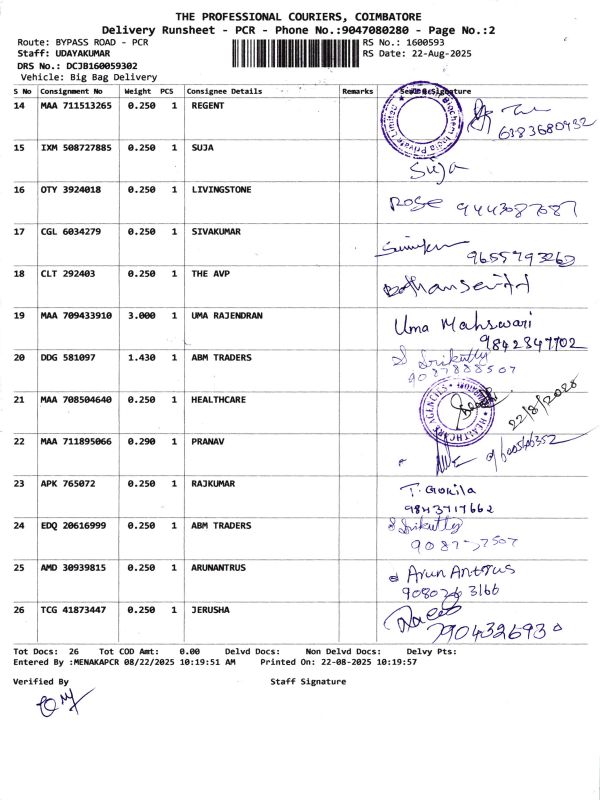 THE PROFESSIONAL COURIERS, COIMBATORE
Delivery Runsheet - PCR - Phone No.:9047080280 - Page No.:2
Route: BYPASS ROAD - PCR RS No.: 1600593
Staff: UDAYAKUMAR RS Date: 22-Aug-2025
DRS No.: DCJB160059302
Vehicle: Big Bag Delivery
S No Consignment No Weight PCS Consignee Details Remarks Seal & Signature
14 MAA 711513265 0.250 1 REGENT
6383680932
15 IXM 508727885 0.250 1 SUJA
Suja
16 OTY 3924018 0.250 1 LIVINGSTONE
Rose 9443087687
17 CGL 6034279 0.250 1 SIVAKUMAR
9655793260
18 CLT 292403 0.250 1 THE AVP
19 MAA 709433910 3.000 1 UMA RAJENDRAN
Uma Mahswari
9842347702
20 DDG 581097 1.430 1 ABM TRADERS
S Srikutty
9087888507
21 MAA 708504640 0.250 1 HEALTHCARE
HEALTHCARE AGENCIES
22/8/2025
22 MAA 711895066 0.290 1 PRANAV
23 APK 765072 0.250 1 RAJKUMAR
T. Gokila
9843717662
24 EDQ 20616999 0.250 1 ABM TRADERS
S Srikutty
25 AMD 30939815 0.250 1 ARUNANTRUS
Arun Antrus
26 TCG 41873447 0.250 1 JERUSHA
790432693
Tot Docs: 26 Tot COD Amt: 0.00 Delvd Docs: Non Delvd Docs: Delvy Pts:
Entered By :MENAKAPCR 08/22/2025 10:19:51 AM Printed On: 22-08-2025 10:19:57
Verified By Staff Signature